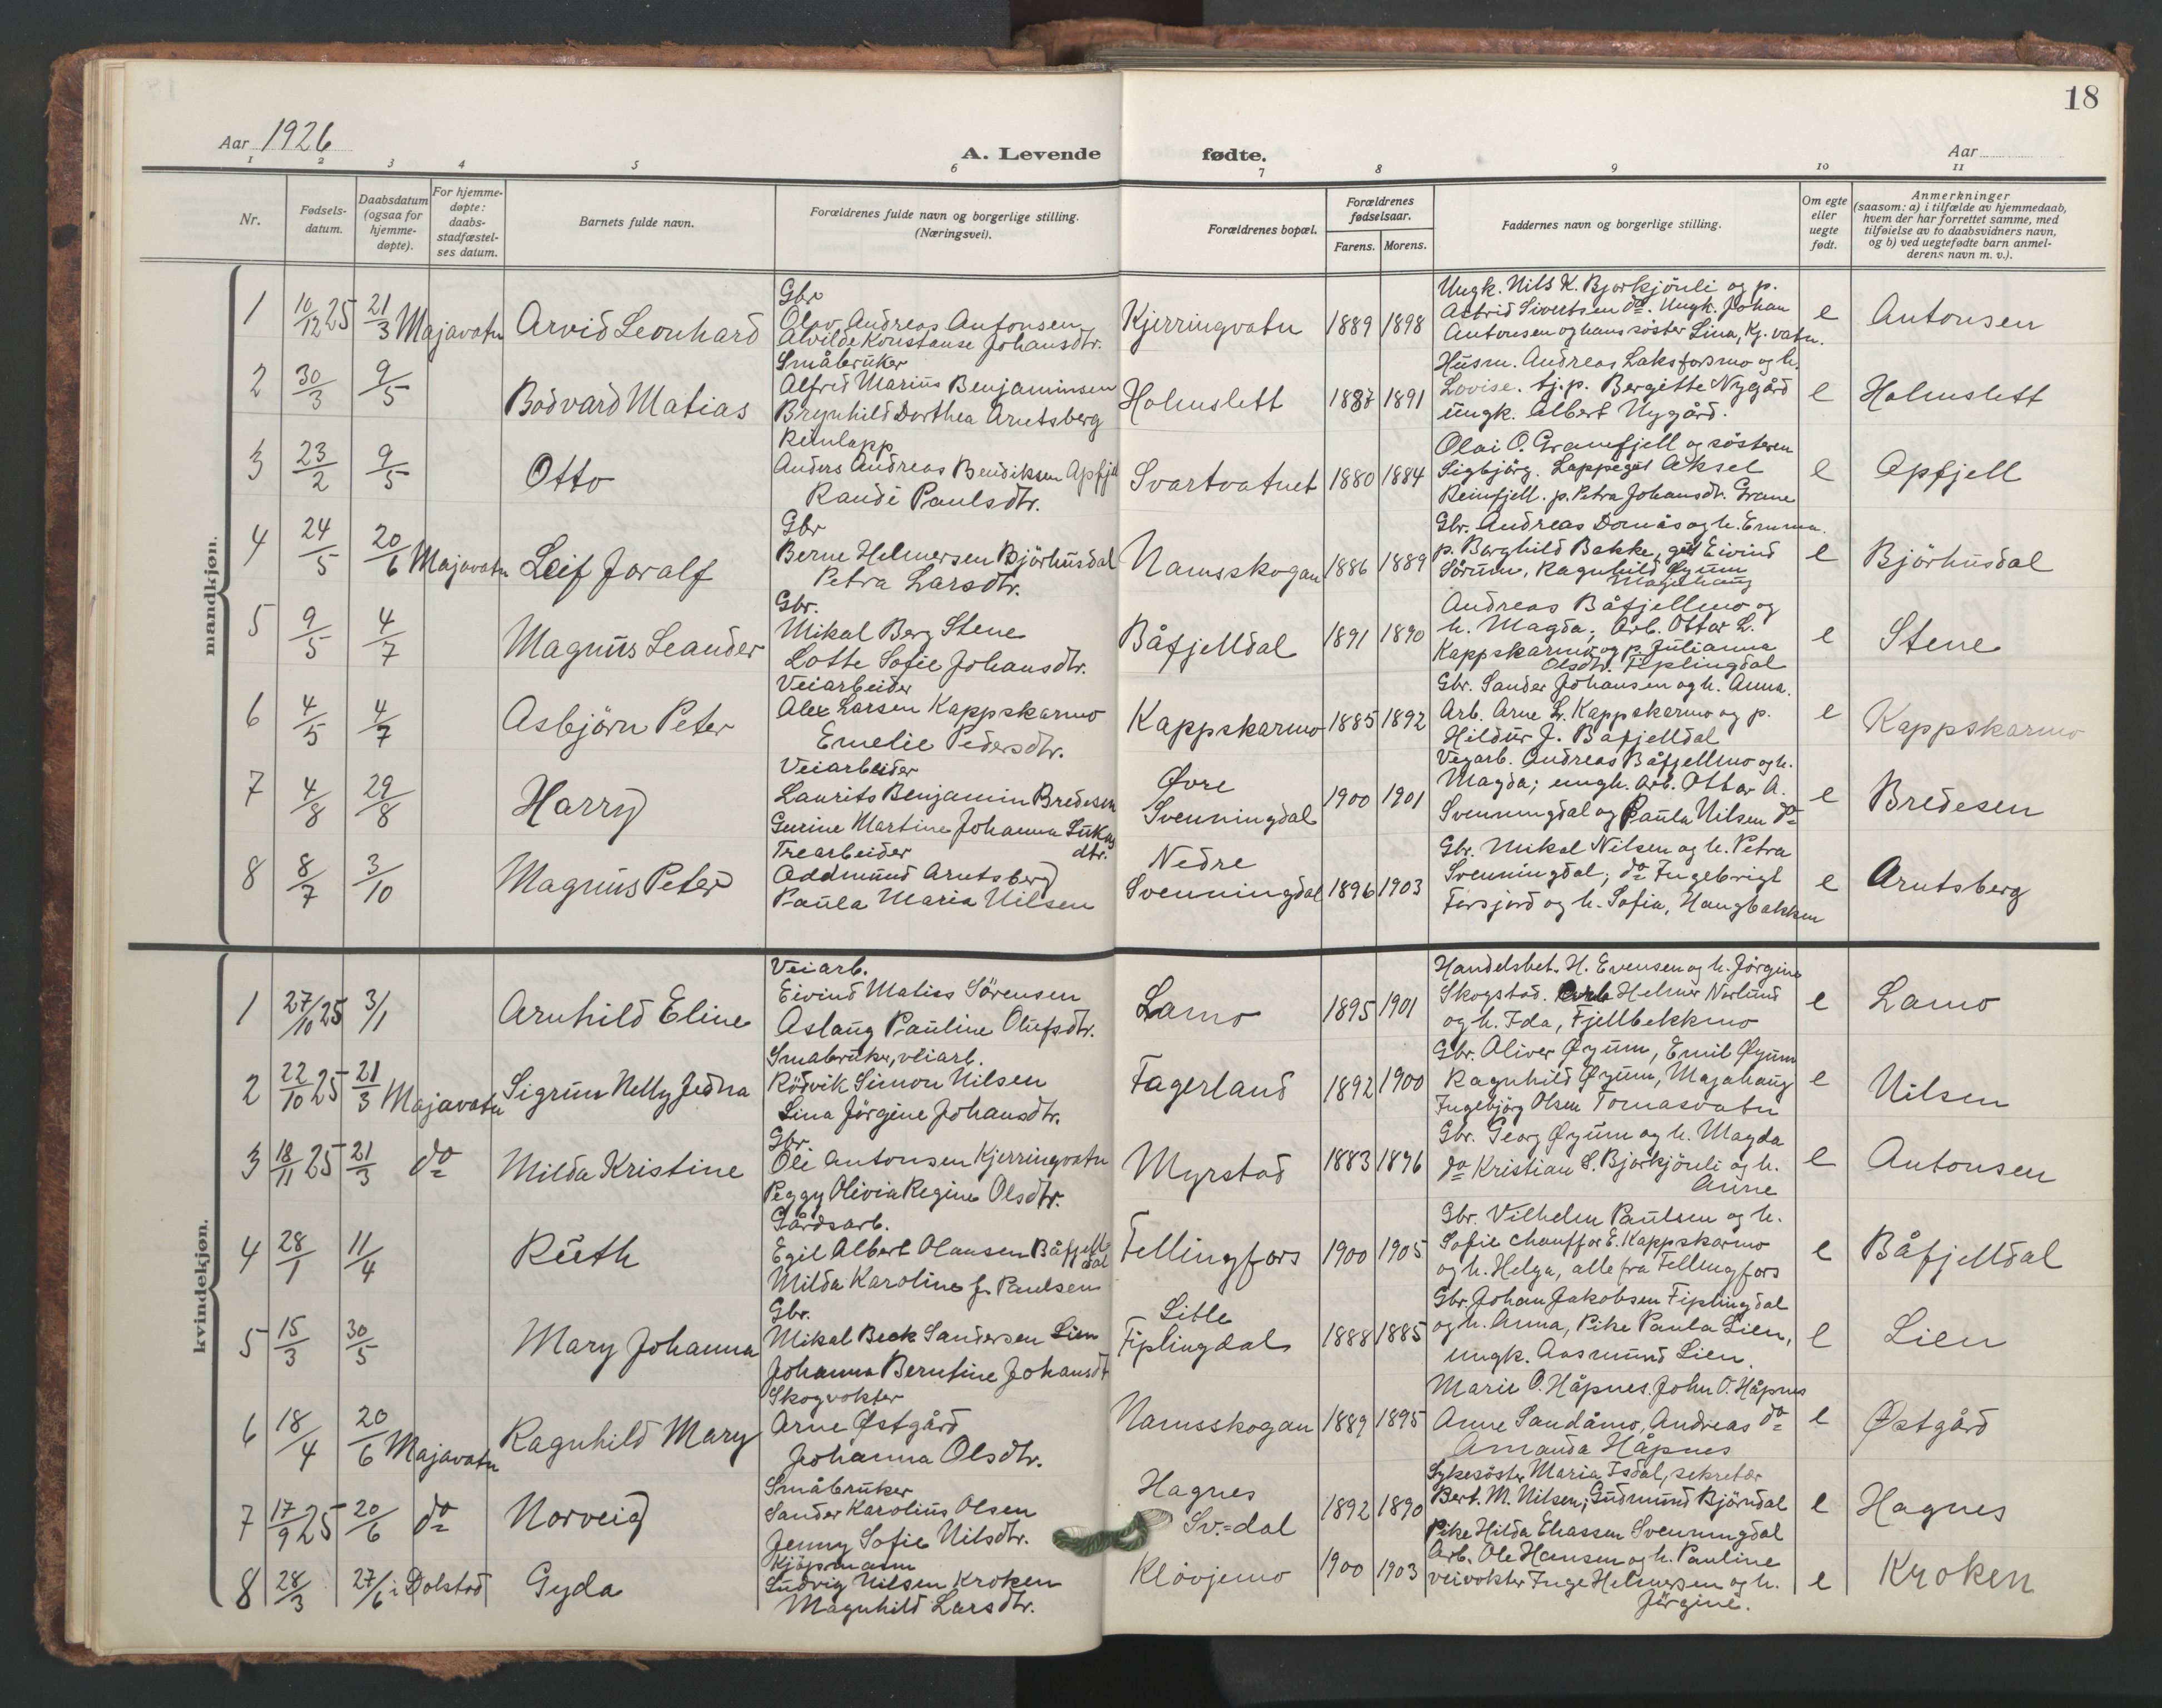 18
Aar 1926
A. Levende fødte.
Aar
1 2 3 4 5 6 7 8 9 10 11
Nr.
Fødsels-
datum.
Daabsdatum
(ogsaa for
hjemme-
døpte).
For hjemme-
døpte:
daabs-
stadfæstel-
ses datum.
Barnets fulde navn.
Forældrenes fulde navn og borgerlige stilling.
(Næringsvei).
Forældrenes bopæl.
Forældrenes
fødselsaar.
Farens. Morens.
Faddernes navn og borgerlige stilling.
Om egte
eller
uegte
født.
Anmerkninger
(saasom: a) i tilfælde av hjemmedaab,
hvem der har forrettet samme, med
tilføielse av to daabsvidners navn,
og b) ved uegtefødte barn anmel-
derens navn m. v.).
mandkjøn.
1 10/12 25 21/3 Majavatn Arvid Leonhard
Gbr
Olav Andreas Antonsen
Alvilde Konstanse Johansdtr.
Kjerringvatn 1889 1898
Ungk. Nils K. Bjørkjönli og p.
Astrid Sivertsen do. Ungk. Johan
Antonsen og hans söster Lina, Kj. vatn.
e Antonsen
2 30/3 9/5 Bodvard Matias
Småbruker
Alfrid Marius Benjaminsen
Brynhild Dorthea Arntsberg
Holmslett 1887 1891
Husm. Andreas Laksforsmo og h.
Lovise. tj.p. Bergitte Nygård
ungk. Albert Nygård.
e Holmslett
3 23/2 9/5 Otto
Reinlapp
Anders Andreas Bendiksen Apfjell
Randi Paulsdtr.
Svartvatnet 1880 1884
Olai O. Granefjell og sösteren
Sigbjörg. Lappegut Aksel
Reinfjell. p. Petra Johansdr. Grane
e Apfjell
4 24/5 20/6 Majavatn Leif Joralf
Gbr
Berne Helmersen Björhusdal
Petra Larsdtr.
Namsskogan 1886 1889
Gbr. Andreas Domås og h. Emma.
p. Borghild Bakke, gut Eivind
Sörum, Ragnhild Øyum
Majahaug
e Björhusdal
5 9/5 4/7 Magnus Leander
Gbr.
Mikal Berg Stene
Lotte Sofie Johansdtr.
Båfjelldal 1891 1890
Andreas Båfjellmo og
h. Magda; Arb. Ottar L.
Kappskarmo og p. Julianna
Olsdtr. Fiplingdal
e Stene
6 4/5 4/7 Asbjörn Peter
Veiarbeider
Alex Larsen Kappskarmo
Emelie Pedersdtr.
Kappskarmo 1885 1892
Gbr. Sander Johansen og h. Anna.
Arb. Arne L. Kappskarmo og p.
Hildur J. Båfjelldal
e Kappskarmo
7 4/8 29/8 Harry
Veiarbeider
Laurits Benjamin Bredesen
Gurine Martine Johanna Lukas
dtr.
Øvre
Svenningdal 1900 1901
Vegarb. Andreas Båfjellmo og h.
Magda; ungk. arb. Ottar A.
Svenningdal og Paula Nilsen do
e Bredesen
8 8/7 3/10 Magnus Peter
Trearbeider
Oddmund Arntsberg
Paula Maria Nilsen
Nedre
Svenningdal 1896 1903
Gbr. Mikal Nilsen og h. Petra
Svenningdal; do Ingebrigt
Forsjord og h. Sofia, Haugbakken
e Arntsberg
kvindekjøn.
1 27/10 25 3/1 Arnhild Eline
Veiarb.
Eivind Matias Sörensen
Aslaug Pauline Olufsdtr.
Lamo 1895 1901
Handelsbet. H. Evensen og h. Jörgine
Skogstad. Arb Helmer Norlund
og h. Ida, Fjellbekkmo
e Lamo
2 22/10 25 21/3 Majavatn Sigrun Nelly Jedna
Småbruker, veiarb.
Rödvik Simon Nilsen
Lina Jörgine Johansdtr.
Fagerland 1892 1900
Gbr. Oliver Øyum, Emil Øyum
Ragnhild Øyum, Majahaug
Ingebjörg Olsen Tomasvatn
e Nilsen
3 18/11 25 21/3 do Milda Kristine
Gbr.
Ole Antonsen Kjerringvatn
Peggy Olivia Regine Olsdtr.
Myrstad 1883 1896
Gbr. Georg Øyum og h. Magda
do Kristian S. Bjørkjönli og h.
Anne
e Antonsen
4 28/1 11/4 Ruth
Gårdsarb.
Egil Albert Olausen Båfjell-
dal
Milda Karoline f. Paulsen
Fellingfors 1900 1905
Gbr. Vilhelm Paulsen og h.
Sofie chauffør E. Kappskarmo
og h. Helga, alle fra Fellingfors
e Båfjelldal
5 15/3 30/5 Mary Johanna
Gbr.
Mikal Beck Sandersen Lien
Johanna Berntine Johansdt
Litle
Fiplingdal 1888 1885
Gbr. Johan Jakobsen Fiplingdal
og h. Anna, Pike Paula Lien,
ungk. Aasmund Lien.
e Lien
6 18/4 20/6 Majavatn Ragnhild Mary
Skogvokter
Arne Østgård
Johanna Olsdtr.
Namsskogan 1889 1895
Marie O. Håpnes. John O. Håpnes
Anne Sandåmo, Andreas do
Amanda Håpnes
e Østgård
7 17/9 25 20/6 do Norveig
Småbruker
Sander Karolius Olsen
Jenny Sofie Nilsdtr.
Hagnes
Sv.=dal 1892 1890
Sykesöster Maria Isdal, sekretær
Bert. M. Nilsen; Gudmund Björndal
Pike Hilda Eliassen Svenningdal
e Hagnes
8 28/3 27/6 i Dolstad Gyda
Kjöpmann
Ludvig Nilsen Kroken
Magnhild Larsdtr.
Klövjemo 1900 1903
Arb. Ole Hansen og h. Pauline
veivokter Inge Helmersen og h.
Jörgine.
e Kroken